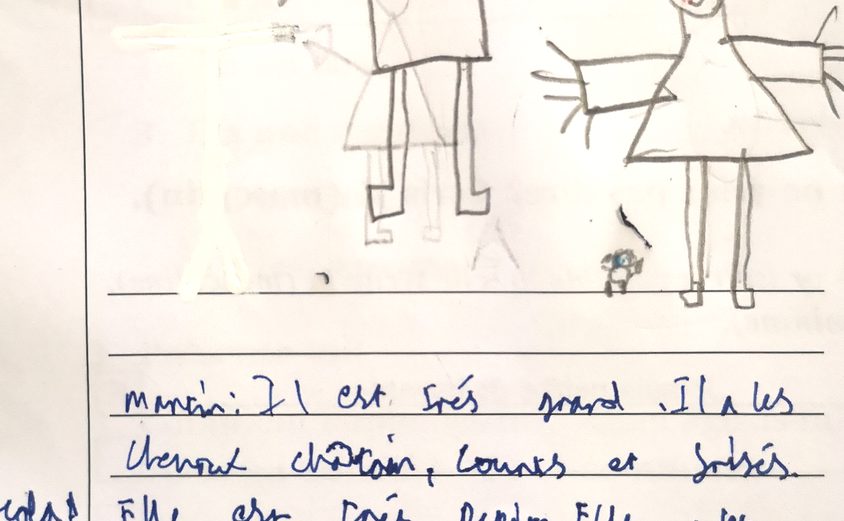 Martin: Il est trés grand. Il a les
cheveux châtain, courts et frisés.
Elle est trés Elle